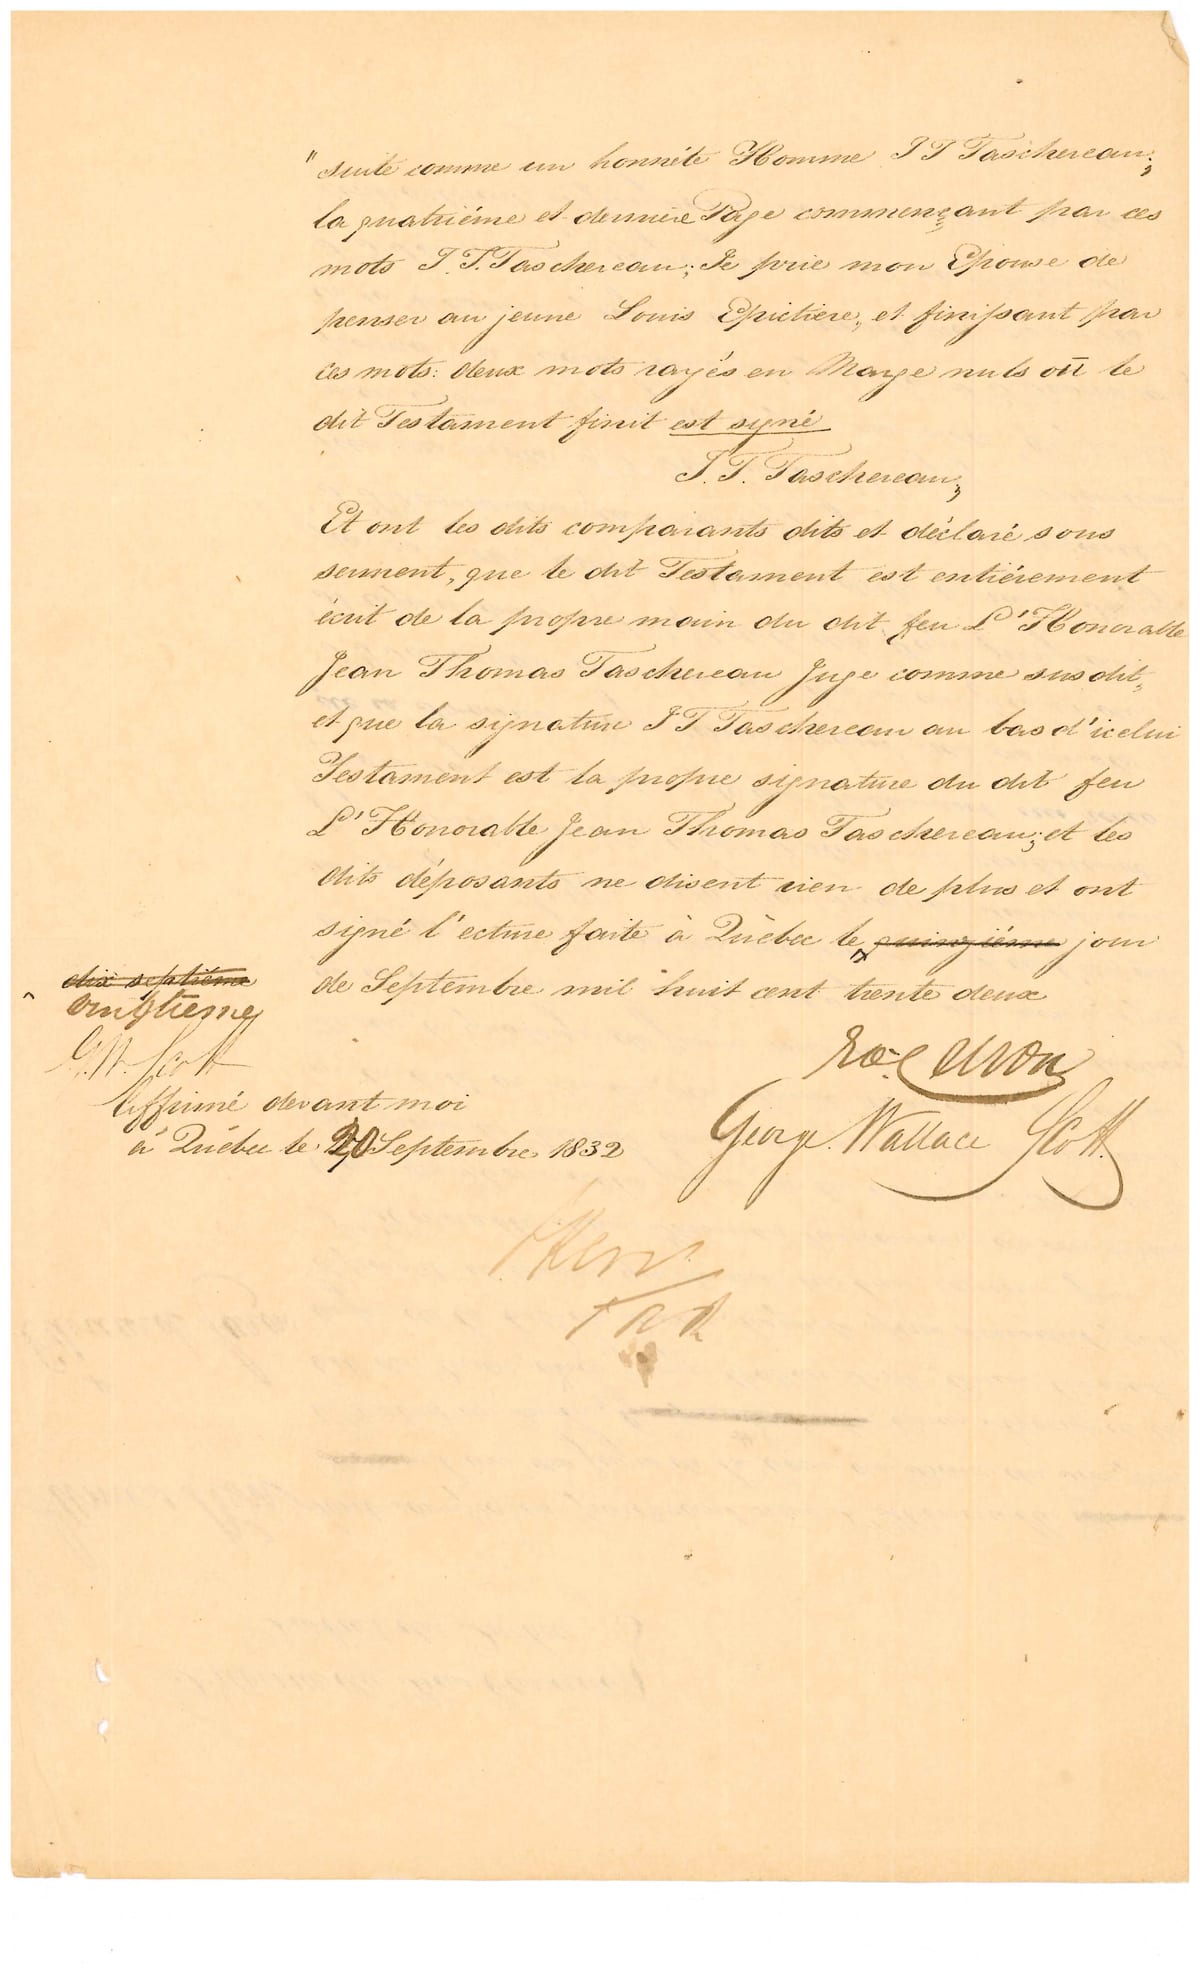 " suite comme un honnéte Homme J T Taschereau;,
la quatriéme et derniere Page commençant par ces
mots J. T. Taschereau; Je prie mon Epouse de
penser au jeune Louis Epictiere, et finissant par
ces mots: deux mots rayés en Marge nuls où le
dit Testament finit est signé
J. T. Taschereau;,
Et ont les dits comparants dits et déclaré sous
serment, que le dit Testament est entiérement
écrit de la propre main du dit feu L'Honorable
Jean Thomas Taschereau Juge comme susdit,
et que la signature J T Taschereau au bas d'icelui
Testament est la propre signature du dit feu
L'Honorable Jean Thomas Taschereau; et les
dits déposants ne disent rien de plus et ont
signé l'ecture faite à Québec le quinziéme jour
de Septembre mil huit cent trente deux
dix septiéme
vingtieme
G. W. Scott
Affirmé devant moi
à Québec le 20 Septembre 1832
George Wallace Scott
J Kerr